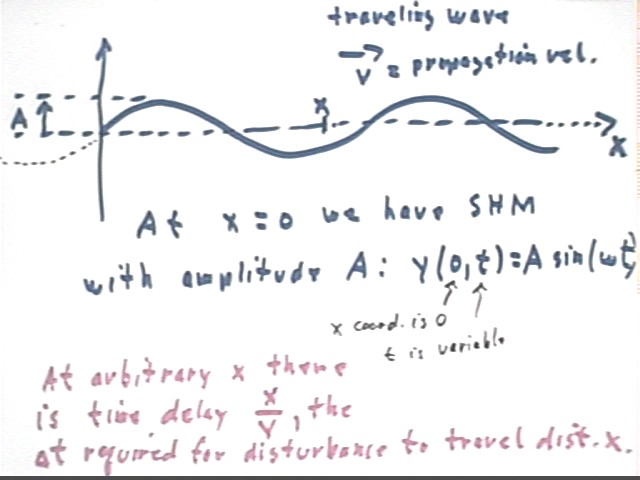 traveling wave
→ V = propagation vel.
A
x
x
At x = 0 we have SHM
with amplitude A: y(0,t)=A sin(ωt)
x coord. is 0
t is variable
At arbitrary x there
is time delay x/v, the
Δt required for disturbance to travel dist. x.